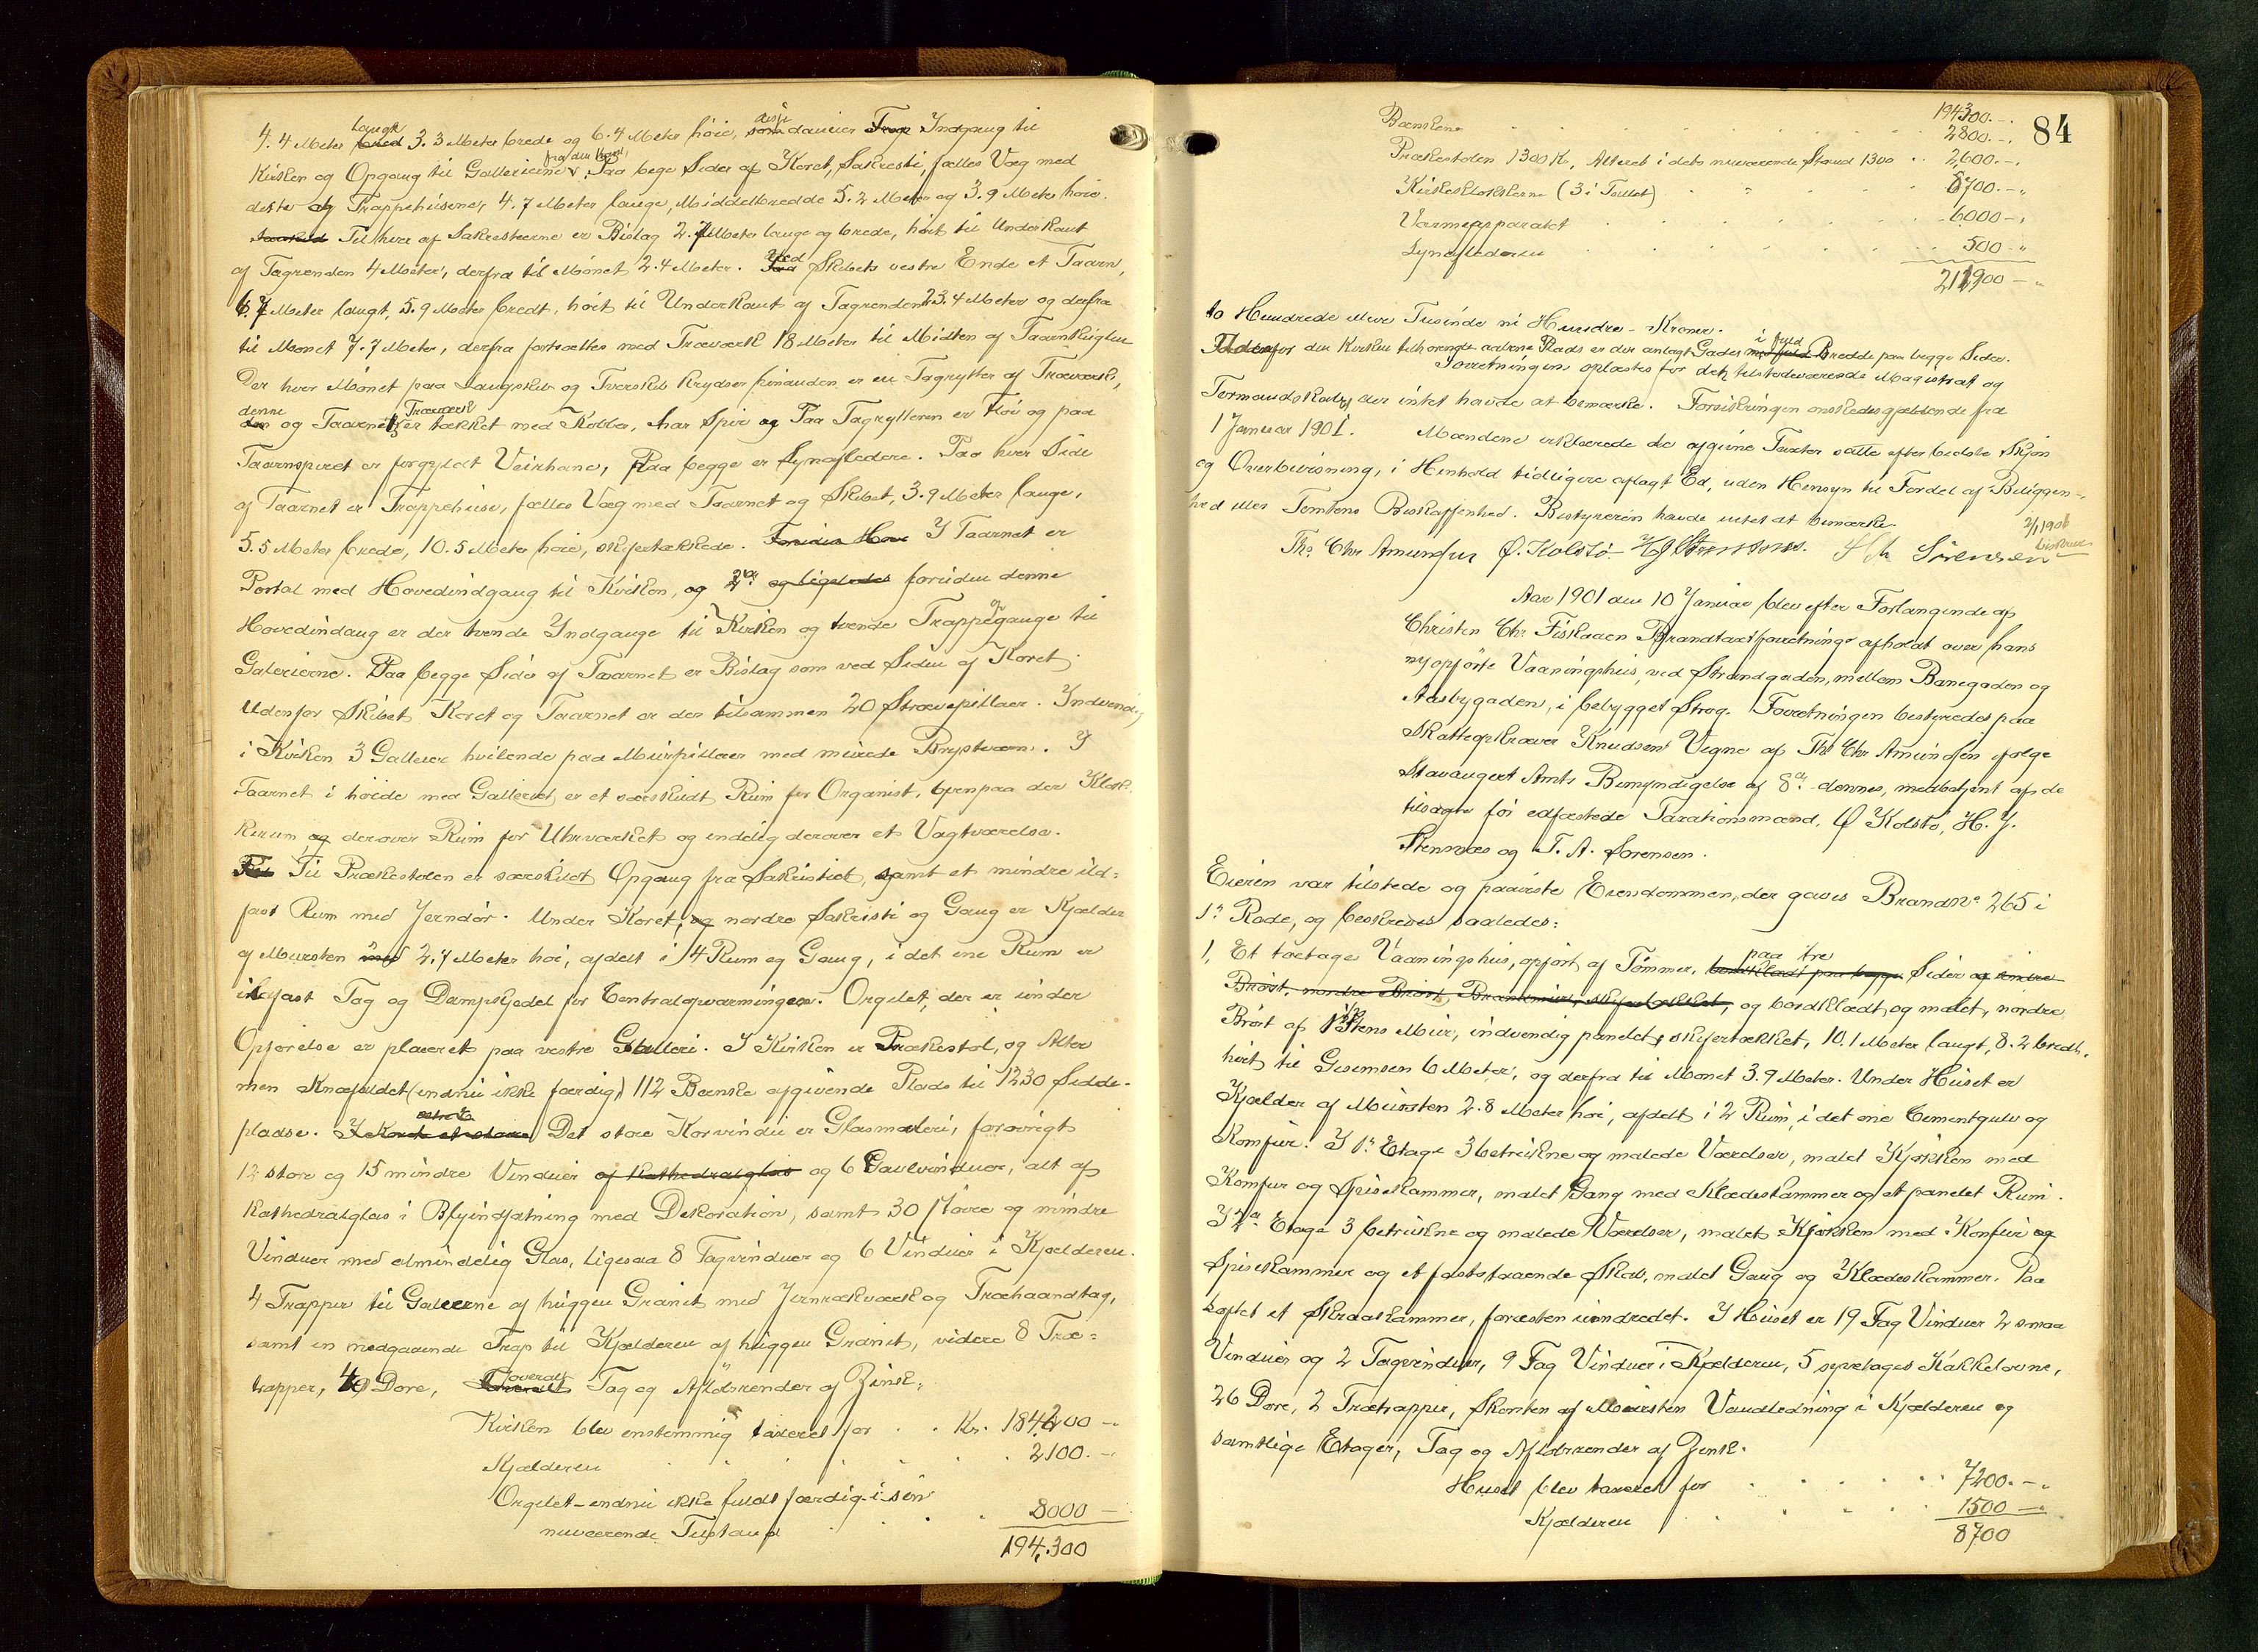 4.4 Meter langt 3.3 Meter brede og 6.4 Meter höie, disse danner Indgang til
Kirken og Opgang til Gallerierne fra den Kant. Paa bege Sider af Koret, Sakresti, fælles Væg med
dette og Trappehusene, 4.7 Meter lange, Middelbredde 5.2 Meter og 3.9 Meter höie.
Til hver af Sakrestierne er Bislag 2.7 Meter lange og brede, höit til Underkant
af Tagrenden 4 Meter, derfra til Mönet 2.4 Meter. Ved Skibets vestre Ende et Taarn,
6.7 Meter langt, 5.9 Meter bredt, höit til Underkant af Tagrenden 23.4 Meter og derfra
til Mönet 7.7 Meter, derfra fortsættes med Træværk 18 Meter til Midten af Taarnkuglen
Der hvor Mönet paa Langskib og Tverskib krydser hinanden er en Tagrytter af Træværk,
denne og Taarnets Træværk er tækket med Kobber, har Spir og Paa Tagrytteren er Flöi og paa
Taarnspiret er forgyldt Veirhane, Paa begge er Lynafledere. Paa hver Side
af Taarnet er Trappehuse, fælles Væg med Taarnet og Skibet, 3.9 Meter lange,
5.5 Meter brede, 10.5 Meter höie, skifertækkede. Foruden Hove I Taarnet er
Portal med Hovedindgang til Kirken, og 2de og ligeledes foruden denne
Hovedindgang er der tvende Indgange til Kirken og tvende Trappegange til
Galerierne. Paa begge Sider af Taarnet er Bislag som ved Siden af Koret.
Udenfor Skibet Koret og Taarnet er der tilsammen 20 Strævepillaer. Indvendig
i Kirken 3 Gallerier hvilende paa Murpillaer med murede Brystværn. I
Taarnet i höide med Galleriet er et særskildt Rum for Organist, ovenpaa der Klok-
kerum og derover Rum for Uhrværket og endelig derover et Vagtværelse.
Til Prækestolen er særskildt Opgang fra Sakristiet, samt et mindre ild-
fast Rum med Jerndör. Under Koret, og nordre Sakristi og Gang er Kjælder
af Mursten med 2.7 Meter höi, afdelt i 14 Rum og Gang, i det ene Rum er
ildfast Tag og Dampkjedel for Centralopvarmingen. Orgelet, der er under
Opförelse er placeret paa vestre Galleri. I Kirken er Prækestol, og Alter
men Knæfaldet (endnu ikke færdig) 112 Bænke afgivende Plads til 1230 Sidde-
pladse. Det store Korvindu er Glasmaleri, forövrigt
12 store og 15 mindre Vinduer af Kathedralglas og 6 Gavlvinduer, alt af
Kathedralglas i Blyindfatning med Dekoration, samt 30 större og mindre
Vinduer med almindelig Glas, ligesaa 8 Tagvinduer og 6 Vinduer i Kjælderen.
4 Trapper til Galerierne af huggen Granit med Jernrækværk og Træhaandtag,
samt en nedgaaende Trap til Kjælderen af huggen Granit, videre 8 Træ-
trapper, 49 Döre, overalt Tag og Afldsrender af Zink.
Kirken blev enstemmig taxeret for . . Kr. 184,200 -
Kjælderen . . . . 2100.-
Orgelet - endnu ikke fuldt færdig - i sin
nuværende Tilstand . . . 8000 -
194,300
84
194300.-
Bænkene . . . 2800.-
Prækestolen 1300 Kr, Alteret i dets nuværende Stand 1300 . . 2600.-
Kirkeklokkerne (3 i Tallet) . . . 5700.-
Varmeapparatet . . . 6000 -
Lynaflederen . . . 500 -
211900 -
to Hundrede elleve Tusinde ni Hundre - Kroner.
Udenfor den Kirken tilhörende aabne Plads er der anlagt Gader i fuld Bredde paa begge Sider.
Forretningen oplæstes for det tilstedeværende Magistrat og
Formandskab, der intet havde at bemærke. Forsikringen önskedes gjældende fra
1 Januar 1901. Mændene erklærede de afgivne Taxter satte efter bedste Skjön
og Overbevisning, i Henhold tidligere aflagt Ed, uden Hensyn til Fordel af Beliggen-
hed eller Tomtens Beskaffenhed. Bestyreren havde intet at bemærke.
2/1 1901
Th. Chr Amundsen Ö. Kolstö H J Stensnæs. T A Sörensen
Aar 1901 den 10 Januar blev efter Forlangende af
Christen Chr Fiskaaen Brandtaxtforretning afholdt over hans
nyopförte Vaaningshus, ved Strandgaden, mellem Banegaden og
Aasbygaden, i bebygget Strög. Forretningen bestyredes paa
Skatteopkræver Knudsens Vegne af Th. Chr Amundsen ifölge
Stavangers Amts Bemyndigelse af 8de dennes, medbetjent af de
tilsagte för edfæstede Taxationsmænd, Ö Kolstö, H. J.
Stensnæs og T. A. Sörensen.
Eieren var tilstede og paaviste Eiendommen, der gaves Brandn. 265 i
1ste Rode, og beskreves saaledes:
1, Et toetages Vaaningshus, opfört af Tömmer, bordklædt paa begge paa tre Sider og söndre
Bröst, nordre Bröst, Brandmur, skifertækket, og bordklædt og malet, nordre
Bröst af 1½ Stens Mur, indvendig panelet, skifertækket, 10.1 Meter langt, 8.2 bredt,
höit til Gesimsen 6 Meter, og derfra til Mönet 3.9 Meter. Under Huset er
Kjælder af Mursten 2.8 Meter höi, afdelt i 2 Rum, i det ene Cementgulv og
Komfur. I 1ste Etage 3 betrukne og malede Værelser, malet Kjökken med
Komfur og Spiskammer, malet Gang med Klædeskammer og et panelet Rum.
I 2den Etage 3 betrukne og malede Værelser, malet Kjökken med Komfur og
Spiskammer og et faststaaende Skab, malet Gang og Klædeskammer. Paa
Loftet et Skraakammer, foresten uindredet. I Huset er 19 Fag Vinduer 2 smaa
Vinduer og 2 Tagvinduer, 9 Fag Vinduer i Kjælderen, 5 syvetages Kakkelovne,
26 Döre, 2 Trætrapper, Skorsten af Mursten Vandledning i Kjælderen og
samtlige Etager, Tag og Afldsrender af Zink.
Huset blev taxeret for . . . 7200.-
Kjælderen . . . 1500 -
8700